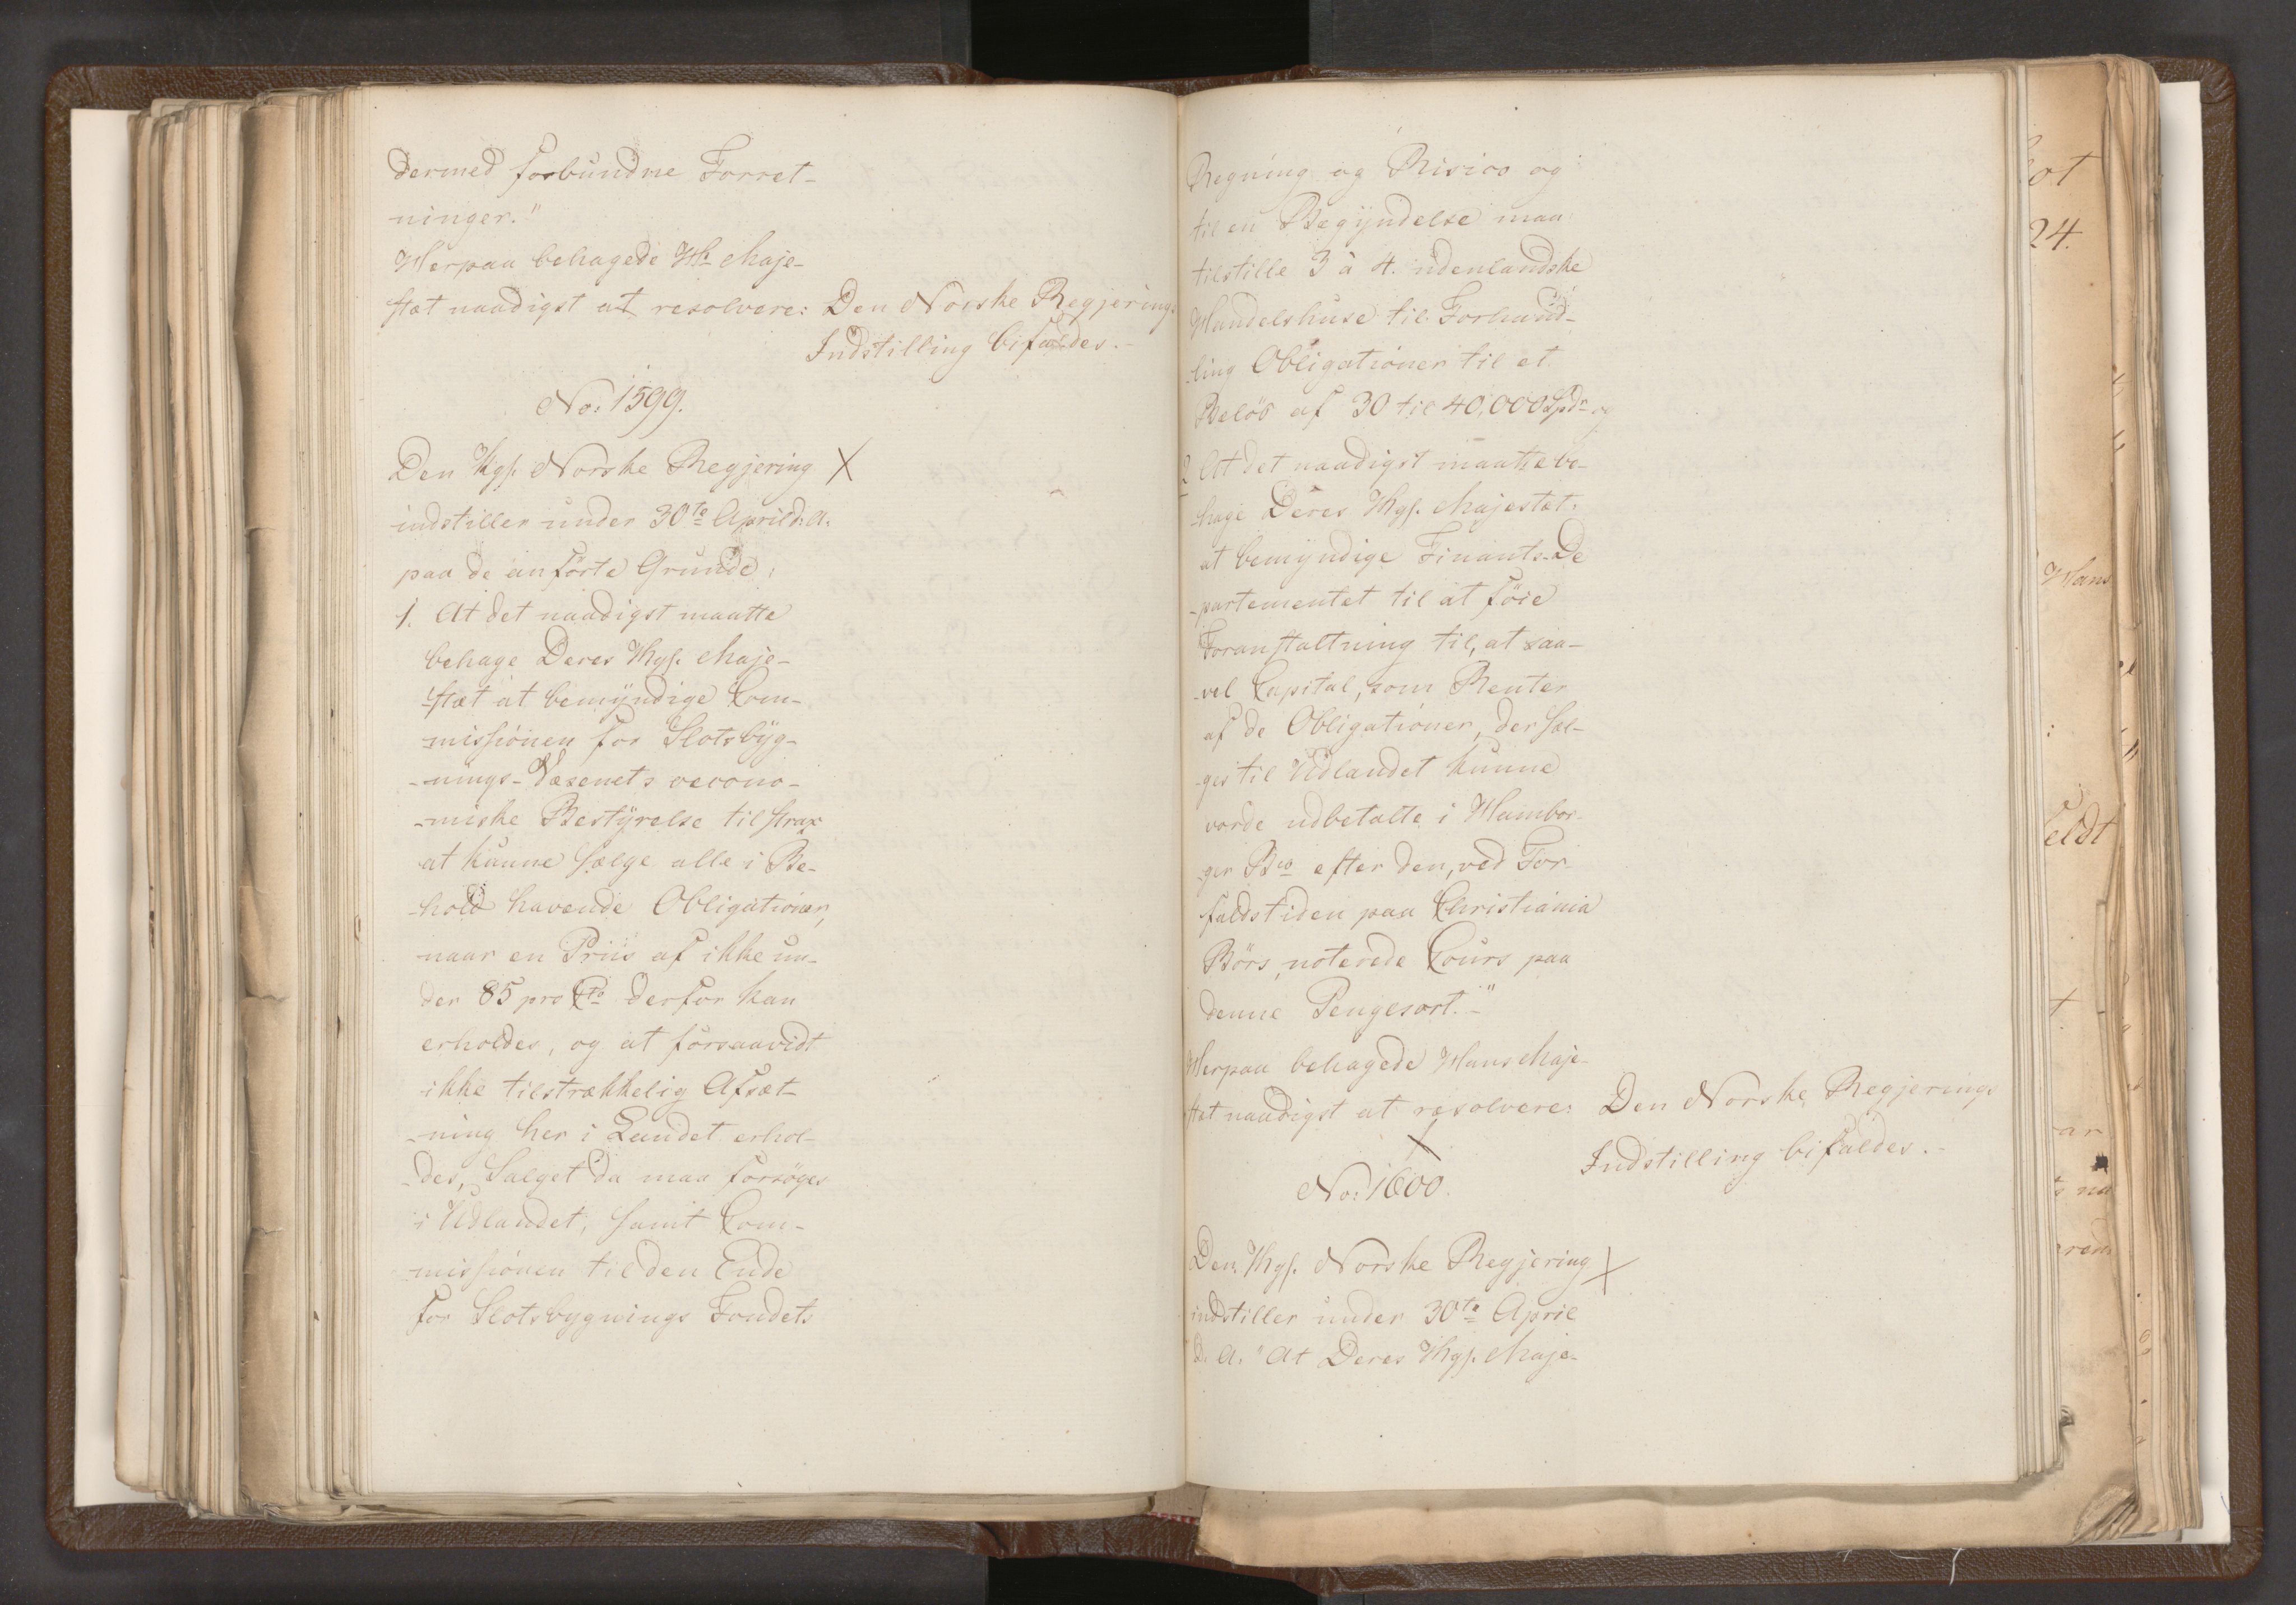 dermed forbundne Forret-
ninger."
Herpaa behagede Hs Maje-
stæt naadigst at resolvere: Den Norske Regjerings
Indstilling bifaldes.-
No: 1599.
Den Kgl. Norske Regjering X
indstiller under 30te April d: A.
paa de anførte Grunde:
1. At det naadigst maatte
behage Deres Kgl. Maje-
-stæt at bemyndige Com-
-missionen for Slotsbyg-
-nings-Væsenets oecono-
-miske Bestyrelse til strax
at kunne sælge alle i Be-
-hold havende Obligationer,
naar en Priis af ikke un-
der 85 pro Cto derfor kan
erholdes, og at forsaavidt
ikke tilstrækkelig Afsæt-
-ning her i Landet erhol-
-des, Salget da maa forsøges
i Udlandet, samt Com-
missionen til den Ende
for Slotsbygnings Fondets
Regning og Risico og
til en Begyndelse maa
tilstille 3 à 4. udenlandske
Handelshuse til Forhand-
ling Obligationer til et
Beløb af 30 til 40,000 Spdr og
2 At det naadigst maatte be-
-hage Deres Kgl. Majestæt,
at bemyndige Finants-De
-partementet til at føie
Foranstaltning til, at saa-
-vel Capital, som Renter
af de Obligationer, der sæl-
-ges til Udlandet kunne
vorde udbetalte i Hambor-
-ger Bco efter den, ved For-
faldstiden paa Christiania
Børs, noterede Cours paa
denne Pengesort."-
Herpaa behagede Hans Maje-
stæt naadigst at resolvere: Den Norske Regjerings
Indstilling bifaldes.-
No: 1600.
Den Kgl. Norske Regjering X
indstiller under 30te April
d. A. "At Deres Kgl. Maje-
24.
Hans